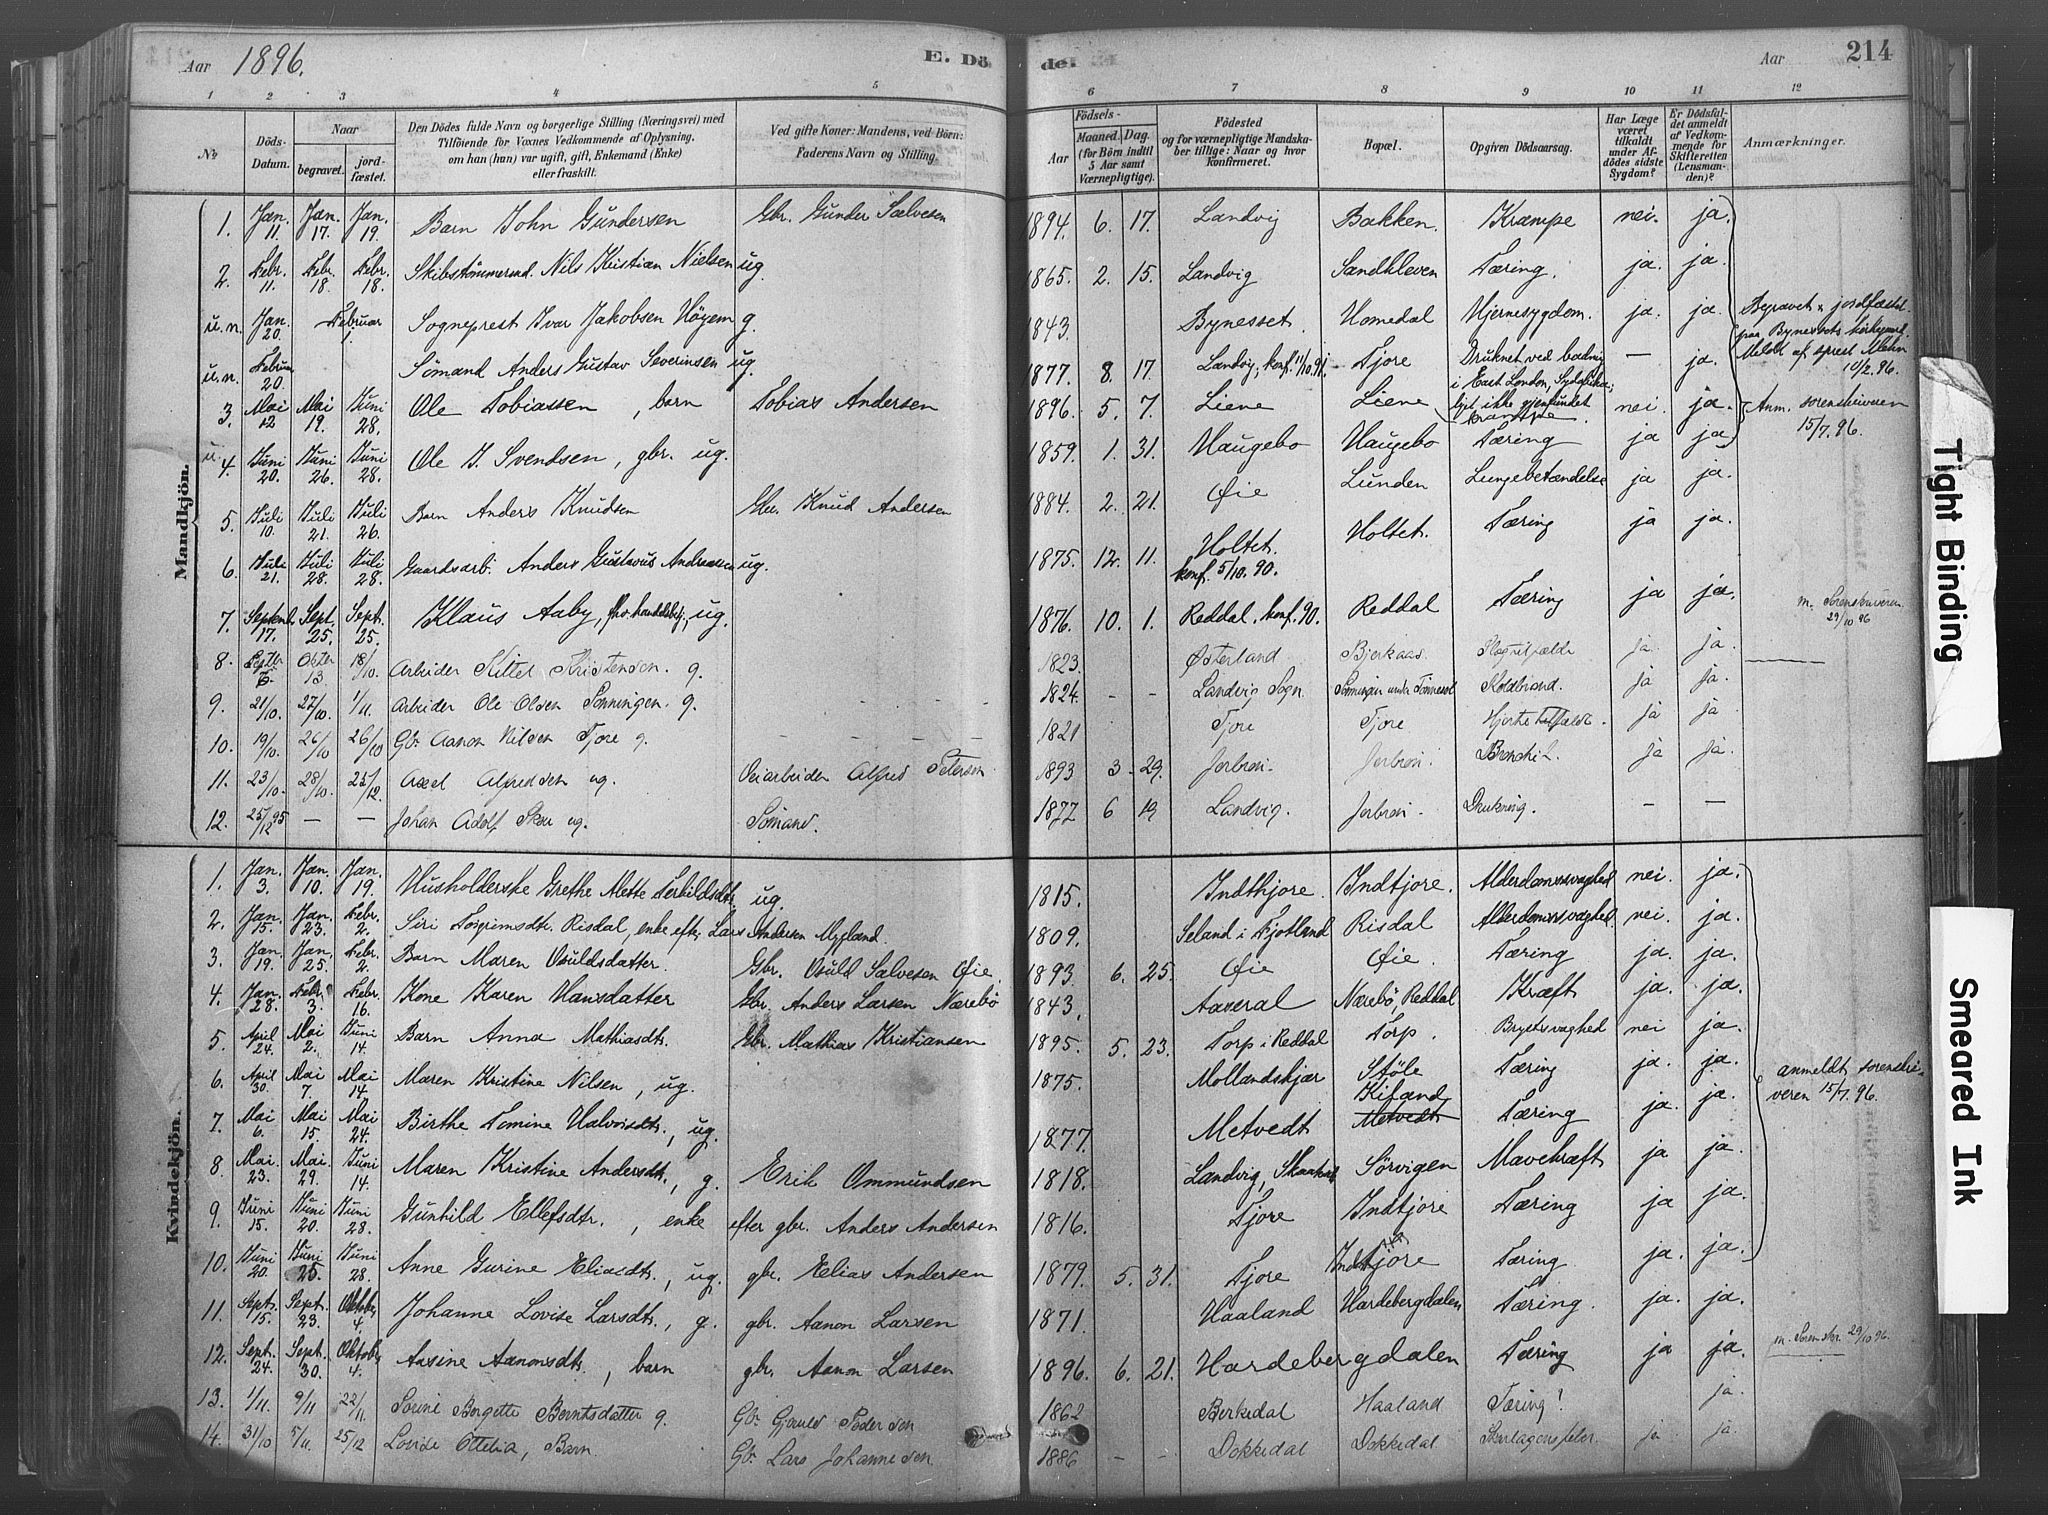 Aar 1896. E. Dö de. Aar 214
1 2 3 4 5 6 7 8 9 10 11 12
No Döds-Datum. Naar begravet. jordfæstet. Den Dödes fulde Navn og borgerlige Stilling (Næringsvei) med Tilföiende for Voxnes Vedkommende af Oplysning, om han (hun) var ugift, gift, Enkemand (Enke) eller fraskilt. Ved gifte Koner: Mandens, ved Börn: Faderens Navn og Stilling. Aar Födsels- Maaned Dag. (for Börn indtil 5 Aar samt Værnepligtige). Födested og for værnepligtige Mandskaber tillige: Naar og hvor Konfirmeret. Bopæl. Opgiven Dödsaarsag. Har Læge været tilkaldt under Afdödes sidste Sygdom? Er Dödsfaldet anmeldt af Vedkommende for Skifteretten (Lensmanden)? Anmærkninger.
Mandkjön.
1. Jan. 11. Jan. 17. Jan. 19. Barn John Gundersen Gbr. Gunder Salvesen 1894. 6. 17. Landvig Bakken. Krampe nei. ja.
2. Febr. 11. Febr. 18. Febr. 18. Skibstömmermd. Nils Kristian Nielsen ug. 1865. 2. 15. Landvig Sandkleven Tæring. ja. ja.
u.n. Jan. 20. Februar Sogneprest Ivar Jakobsen Höyem g. 1843. Bynesset. Homedal Hjernesygdom. ja. ja. Begravet & jordfæstet paa Bynessets kirkegaard.
u.n. Februar 20. Sömand Anders Gustav Severinsen ug. 1877. 8. 17. Landvig, konf. 11/10.91. Tjore Druknet ved badning i East London, Sydafrika; liget ikke gjenfundet — ja. Meldt af sprest 10/2.96.
3. Mai 12 Mai 19. Juni 28. Ole Tobiassen, barn Tobias Andersen 1896. 5. 7. Liene Liene krampe. nei. ja. Anm. sorenskriveren 15/7.96.
4. Juni 20. Juni 26. Juni 28. Ole J. Svendsen, gbr. ug. 1859. 1. 31. Haugebo Haugebo Tæring ja ja
5. Juli 10. Juli 21. Juli 26. Barn Anders Knudsen Gbr. Knud Andersen 1884. 2. 21. Øie Lunden Lungebetændelse ja ja.
6. Juli 21. Juli 28. Juli 28. Gaardsarb. Anders Gustavus Andreassen ug. 1875. 12. 11. Holtet. konf. 5/10.90. Holtet. Tæring ja ja.
7. Septemb. 17. Sept. 25. Sept. 25. Klaus Aaby, ug. 1876. 10. 1. Reddal. konf. 90. Reddal Tæring ja ja. m. Sorenskriveren 29/10 96
8. Septbr Oktbr 13 18/10. Arbeider Kittel Kristensen. g. 1823. Østerland Bjerkaas. ja. ja.
9. 21/10. 27/10. 1/11. Arbeider Ole Olsen Sönningen. g. - - - 1824. - - Landvig Sogn. Koldbrand. ja ja.
10. 19/10. 26/10 26/10 Gbr. Aanon Nilsen Tjore g. - - - - 1821 Tjore Tjore ja ja
11. 23/10. 28/10. 25/12. Axel Alfredsen ug. Veiarbeider Alfred Petersen 1893 3 - 29. Jorbroi. Jorbroi. ja ja.
12. 25/12 95 — — Johan Adolf ug. Sömand. 1877 6 19 Landvig. Jorbroi. Drukning. — —
Kvindekjön.
1. Jan. 3. Jan. 10. Jan. 19. Husholderske Grethe Mette Terkildsdt. ug. 1815. Indtjore. Indtjore. Alderdomssvaghed nei. ja.
2. Jan. 15. Jan. 23. Febr. 2. Siri Torgrimsdt. Risdal, enke efter Lars Andersen Mygland. 1809. Seland i Fjotland Risdal Alderdomssvaghed. nei. ja.
3. Jan. 19. Jan. 25. Febr. 2. Barn Maren Osuldsdatter. Gbr. Osuld Salvesen Øie. 1893 6. 25. Øie Øie. Tæring ja. ja.
4. Jan. 28. Febr. 3. Febr. 16. Kone Karen Hansdatter Gbr. Anders Larsen Nærebö 1843. Aaveral Nærebö, Reddal Kræft ja. ja.
5. April 24. Mai 2. Juni 14. Barn Anna Mathiasdt. Gbr. Mathias Kristiansen 1895. 5. 23. Torp i Reddal Torp. Brystsvaghed nei ja.
6. April 30. Mai 7. Mai 14. Maren Kristine Nilsen, ug. 1875. Mollandskjær Stöle Tæring ja. ja. anmeldt sorenskriveren 15/7.96.
7. Mai 6. Mai 15. Mai 24. Birthe Tomine Halvorsdt., ug. 1877. Metvedt Kiland Metvedt Tæring ja. ja.
8. Mai 23. Mai. 29. Juni 14. Maren Kristine Andersdt., g. Erik Ommundsen 1818. Landvig, Sörvigen Mavekræft ja ja.
9. Juni 15. Juni 20. Juni 28. Gunhild Ellefsdtr., enke efter gbr. Anders Andersen 1816. Tjore Indtjore Tæring ja ja.
10. Juni 20. Juni 25. Juni 28. Anne Gurine Eliasdt., ug. gbr. Elias Andersen 1879. 5. 31. Tjore Indtjore Tæring. ja. ja.
11. Sept. 15. Sept. 23. Oktober 4. Johanne Lovise Larsdt., g. gbr. Aanon Larsen 1871. Haaland Hardebergdalen Tæring. ja. ja.
12. Sept. 24. Sept. 30. Oktober 4. Aasine Aanonsdt., barn gbr. Aanon Larsen 1896. 6. 21. Hardebergdalen Tæring ja ja. m. Sorenskr. 29/10 96.
13. 1/11. 9/11 22/11. Sorine Bergette Berntsdatter g. Gbr. Pedersen 1862 Birkedal Haaland Tæring! ja.
14. 31/10 5/11. 25/12 Lovise Ottelia, Barn Gbr. Lars Johannesen 1886 - - Dokkedal Dokkedal Skarlagensfeber. ja ja.
Tight Binding
Smeared Ink